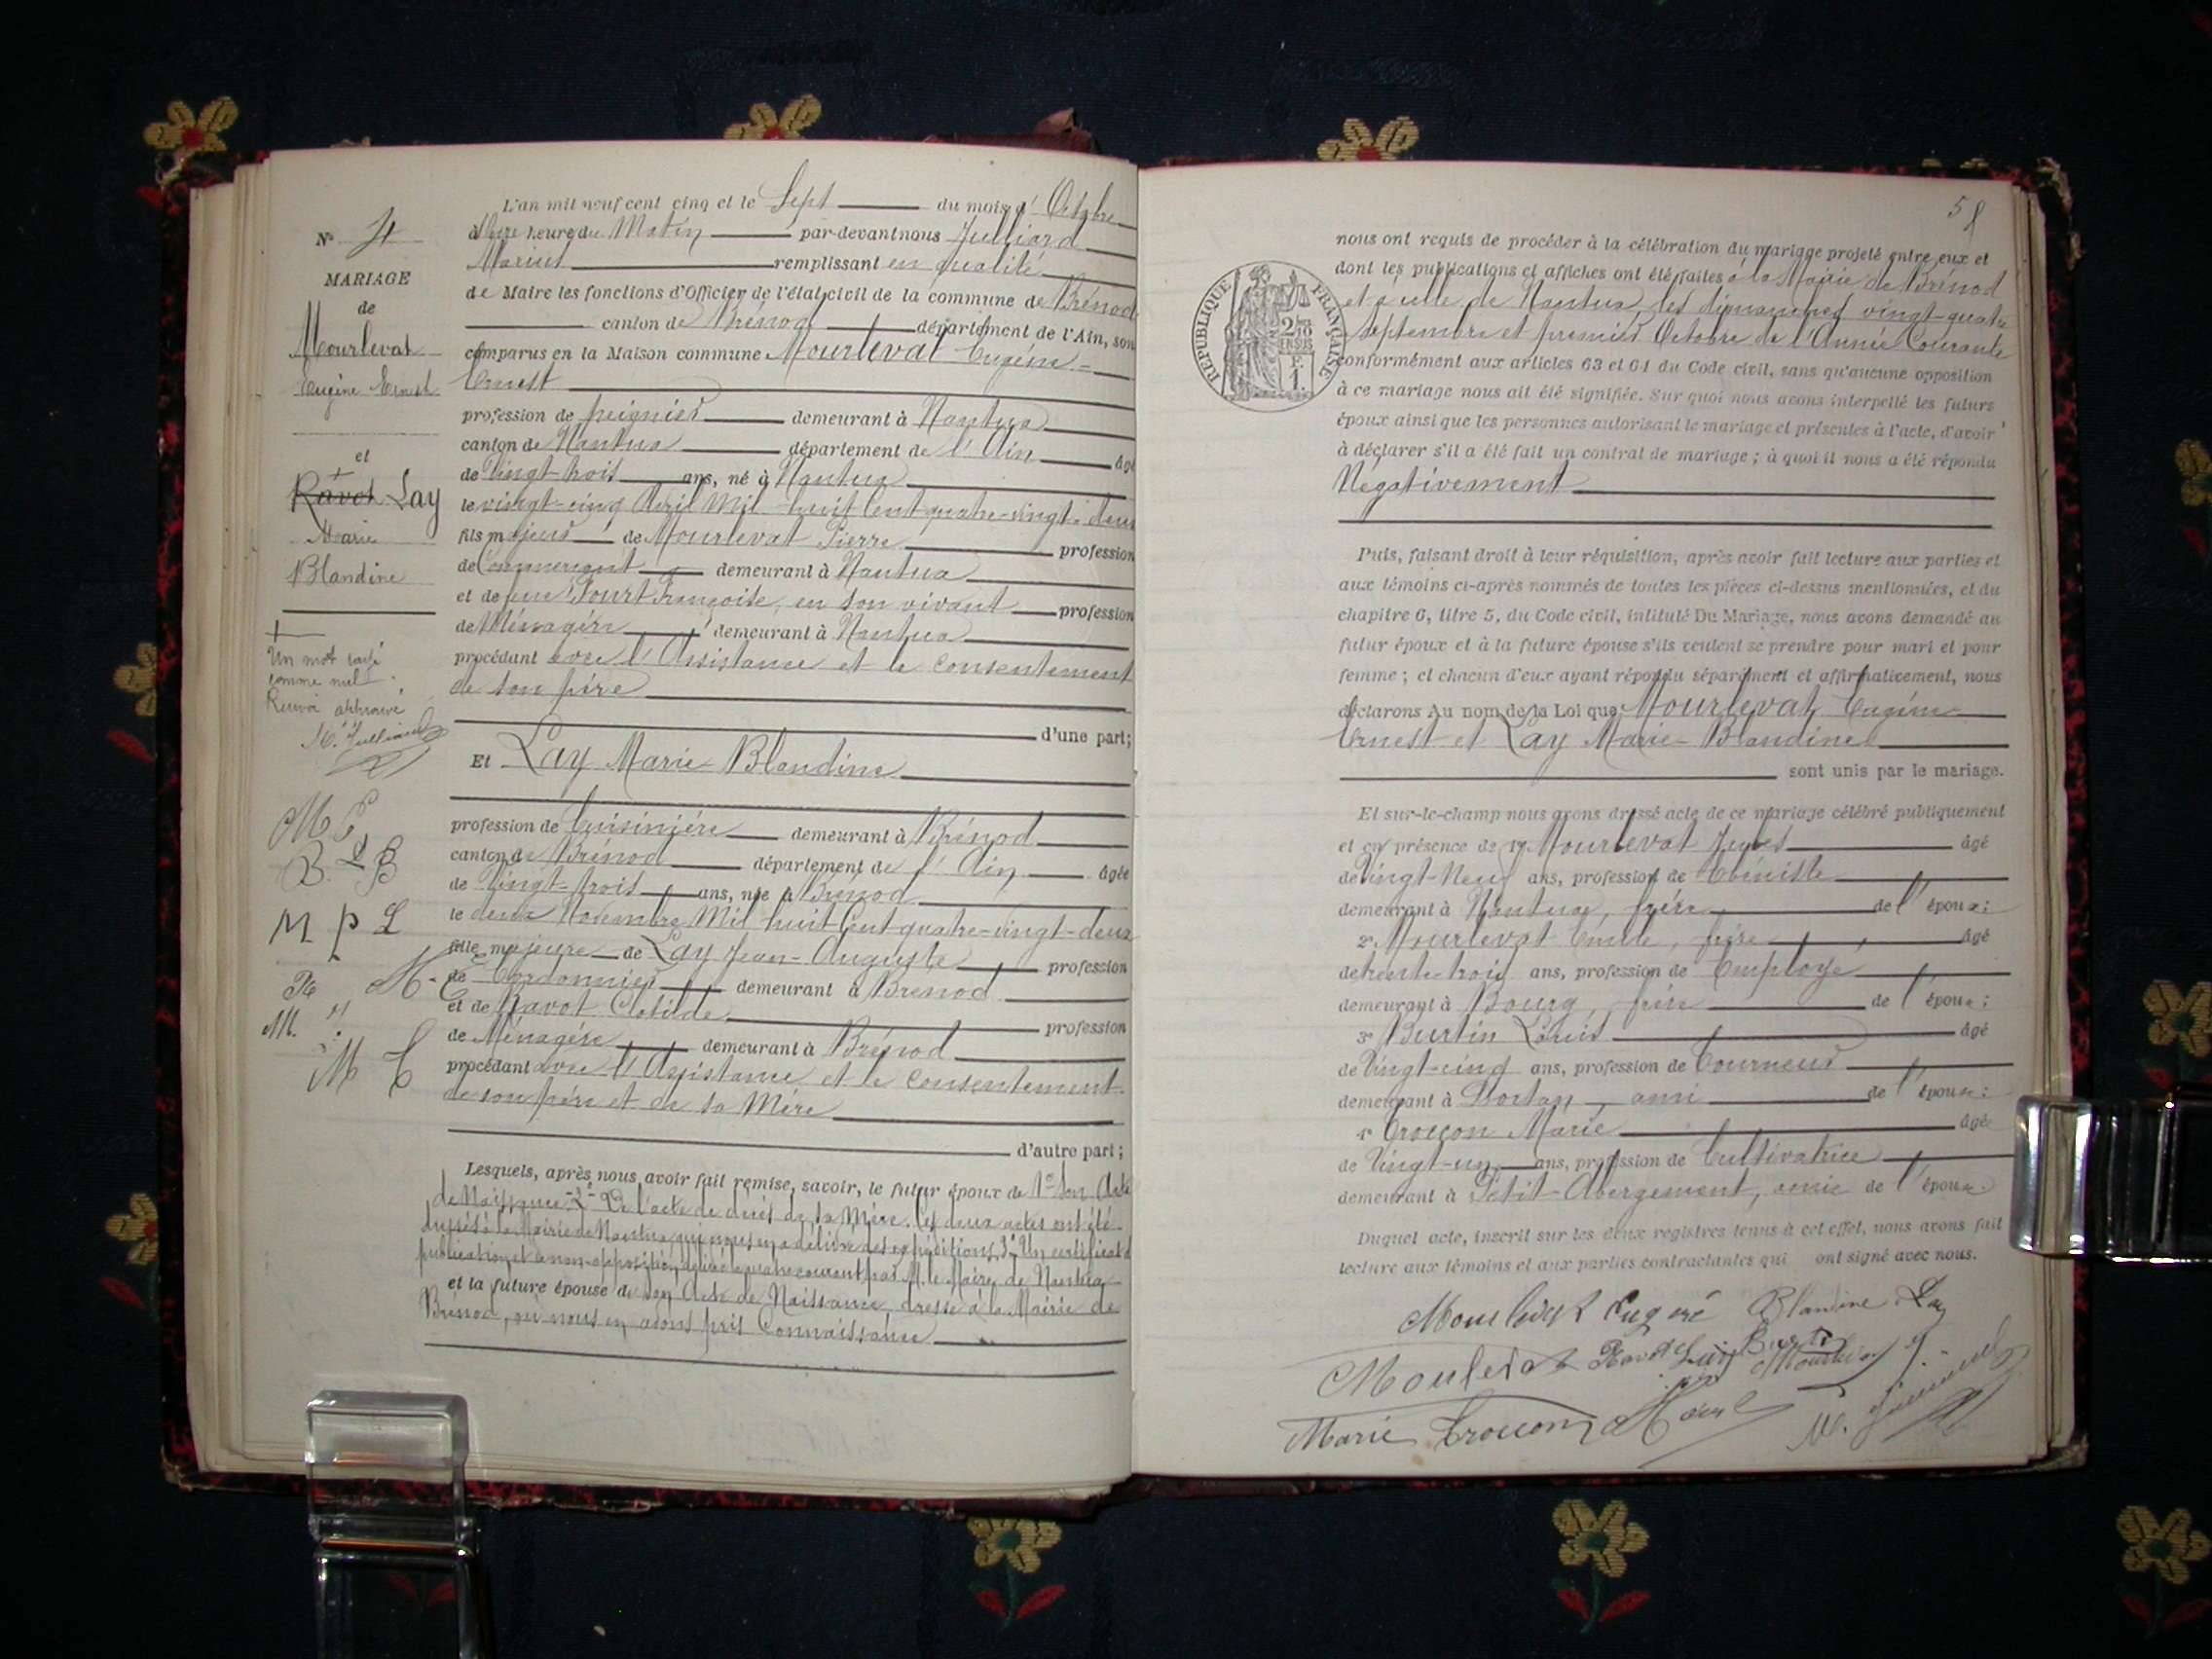 L'an mil neuf cent cinq et le Sept du mois d'Octobre
à heure du Matin par-devant nous Julliard
Marius remplissant en qualité
de Maire les fonctions d'Officier de l'état civil de la commune de Brénod
canton de Brénod département de l'Ain, sont
comparus en la Maison commune Mourlevat Eugène-
Ernest
profession de peignier demeurant à Nantua
canton de Nantua département de l'Ain âgé
de Vingt-trois ans, né à Nantua
le vingt-cinq Avril Mil huit Cent quatre-vingt-deux
fils majeur de Mourlevat Pierre profession
de Commerçant demeurant à Nantua
et de feue Françoise, en son vivant profession
de Ménagère demeurant à Nantua
procédant avec l'Assistance et le consentement
de son père
d'une part;
Et Lay Marie-Blandine
profession de Cuisinière demeurant à Brénod
canton de Brénod département de l'Ain âgée
de Vingt-trois ans, née à Brénod
le deux Novembre Mil huit Cent quatre-vingt-deux
fille majeure de Lay Jean-Auguste profession
de Cordonnier demeurant à Brénod
et de Ravot Clotilde profession
de Ménagère demeurant à Brénod
procédant avec l'Assistance et le consentement
de son père et de sa Mère
d'autre part;
Lesquels, après nous avoir fait remise, savoir, le futur époux de 1° son Acte
de Naissance - 2° De l'acte de décès de sa Mère. Ces deux actes ont été
dressés à la Mairie de Nantua qui nous en a délivré des expéditions, 3° Un certificat de
publication et de non-opposition, délivré le quatre courant par M. le Maire de Nantua
et la future épouse de son Acte de Naissance, dressé à la Mairie de
Brénod, où nous en avons pris Connaissance
N° 4
MARIAGE
de
Mourlevat
Eugène Ernest
et
+
Ravot Lay
Marie
Blandine
+
Un mot rayé
comme nul.
Renvoi approuvé
M. Julliard
M E
B. L B
M P L
M. E
M.
M E
58
RÉPUBLIQUE FRANÇAISE
nous ont requis de procéder à la célébration du mariage projeté entre eux et
dont les publications et affiches ont été faites à la Mairie de Brénod
et à celle de Nantua, les dimanches vingt-quatre
Septembre et premier Octobre de l'Année Courante
conformément aux articles 63 et 64 du Code civil, sans qu'aucune opposition
à ce mariage nous ait été signifiée. Sur quoi nous avons interpellé les futurs
époux ainsi que les personnes autorisant le mariage et présentes à l'acte, d'avoir
à déclarer s'il a été fait un contrat de mariage; à quoi il nous a été répondu
Négativement
Puis, faisant droit à leur réquisition, après avoir fait lecture aux parties et
aux témoins ci-après nommés de toutes les pièces ci-dessus mentionnées, et du
chapitre 6, titre 5, du Code civil, intitulé Du Mariage, nous avons demandé au
futur époux et à la future épouse s'ils veulent se prendre pour mari et pour
femme; et chacun d'eux ayant répondu séparément et affirmativement, nous
déclarons Au nom de la Loi que Mourlevat, Eugène
Ernest et Lay Marie-Blandine
sont unis par le mariage.
Et sur-le-champ nous avons dressé acte de ce mariage célébré publiquement
et en présence de 1° Mourlevat Jules âgé
de Vingt-Neuf ans, profession de Ebéniste
demeurant à Nantua, frère de l'époux;
2° Mourlevat Emile, frère âgé
de trente-trois ans, profession de Employé
demeurant à Bourg, frère de l'époux;
3° Burtin Louis âgé
de Vingt-cinq ans, profession de Tourneur
demeurant à Dortan, ami de l'époux;
4° Crouzon Marie âgée
de Vingt-un ans, profession de Cultivatrice
demeurant à Petit-Abergement, amie de l'épouse
Duquel acte, inscrit sur les deux registres tenus à cet effet, nous avons fait
lecture aux témoins et aux parties contractantes qui ont signé avec nous.
Mourlevat Eugène Blandine Lay
Mourlevat
Marie M. Julliard